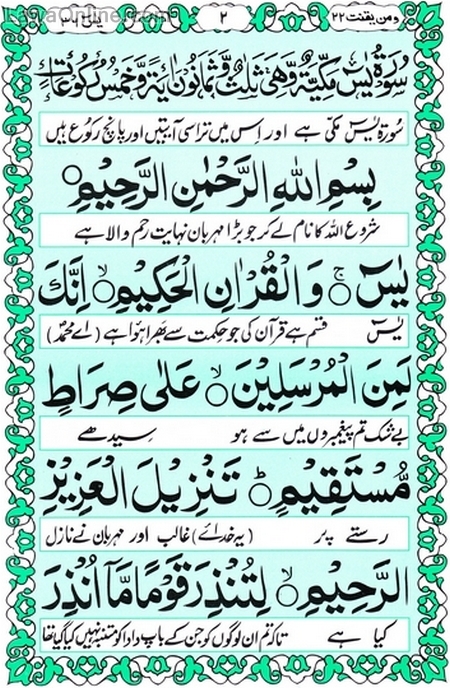 ومن یقنت ٢٢
٢
یٰسٓ ٣٦
سُوْرَةُ يٰسٓ مَكِّيَّةٌ وَّهِيَ ثَلٰثٌ وَّثَمَانُوْنَ اٰيَةً وَّخَمْسُ رُكُوْعَاتٍ
سُورۃ یٰسٓ مکی ہے اور اِس میں تراسی آیتیں اور پانچ رکوع ہیں
بِسْمِ اللّٰهِ الرَّحْمٰنِ الرَّحِيْمِ
شروع اللہ کا نام لے کر جو بڑا مہربان نہایت رحم والا ہے
يٰسٓ ۚ وَالْقُرْاٰنِ الْحَكِيْمِ ۙ اِنَّكَ
یٰسٓ قسم ہے قرآن کی جو حکمت سے بھرا ہوا ہے (اے محمدؐ)
لَمِنَ الْمُرْسَلِيْنَ ۙ عَلٰى صِرَاطٍ
بےشک تم پیغمبروں میں سے ہو سیدھے
مُّسْتَقِيْمٍ ؕ تَنْزِيْلَ الْعَزِيْزِ
رستے پر (یہ خدائے) غالب اور مہربان نے نازل
الرَّحِيْمِ ۙ لِتُنْذِرَ قَوْمًا مَّآ اُنْذِرَ
کیا ہے تاکہ تم ان لوگوں کو جن کے باپ دادا کو متنبہ نہیں کیا گیا تھا